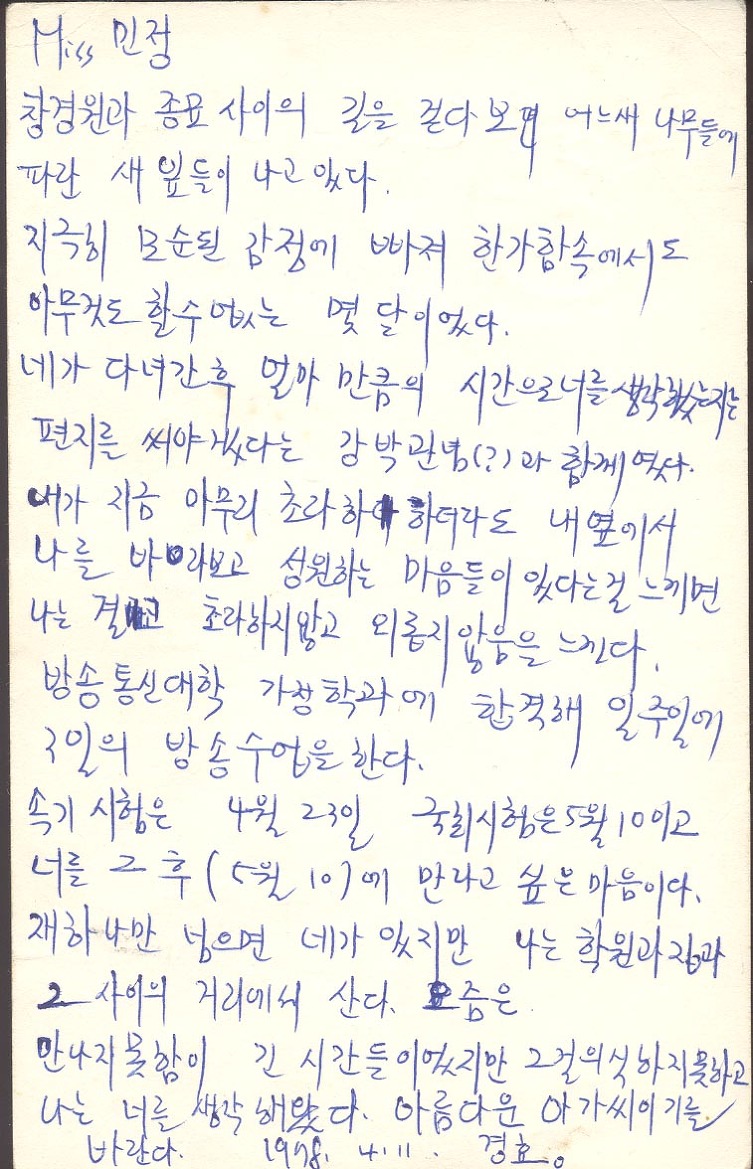 Miss 민정
창경원과 종묘 사이의 길을 걷다 보면 어느새 나무들에
파란 새 잎들이 나고 있다.
지극히 모순된 감정에 빠져 한가함속에서도
아무것도 할수 없는 몇 달이었다.
네가 다녀간 후 얼마 만큼의 시간으로 너를 생각했는지는
편지를 써야 겠다는 강박관념(?)과 함께 였다.
내가 지금 아무리 초라하 하더라도 내 옆에서
나를 바라보고 성원하는 마음들이 있다는걸 느끼면
나는 결코 초라하지 않고 외롭지 않음을 느낀다.
방송통신대학 가정학과에 합격해 일주일에
3일의 방송수업을 한다.
속기 시험은 4월 23일 국회시험은 5월 10이고
너를 그 후 (5월 10)에 만나고 싶은 마음이다.
재하나만 넘으면 네가 있지만 나는 학원과 집과
그 사이의 거리에서 산다. 요즘은
만나지 못함이 긴 시간들이었지만 그걸 의식하지 못하고
나는 너를 생각해왔다. 아름다운 아가씨이기를
바란다. 1978. 4. 11. 경효.